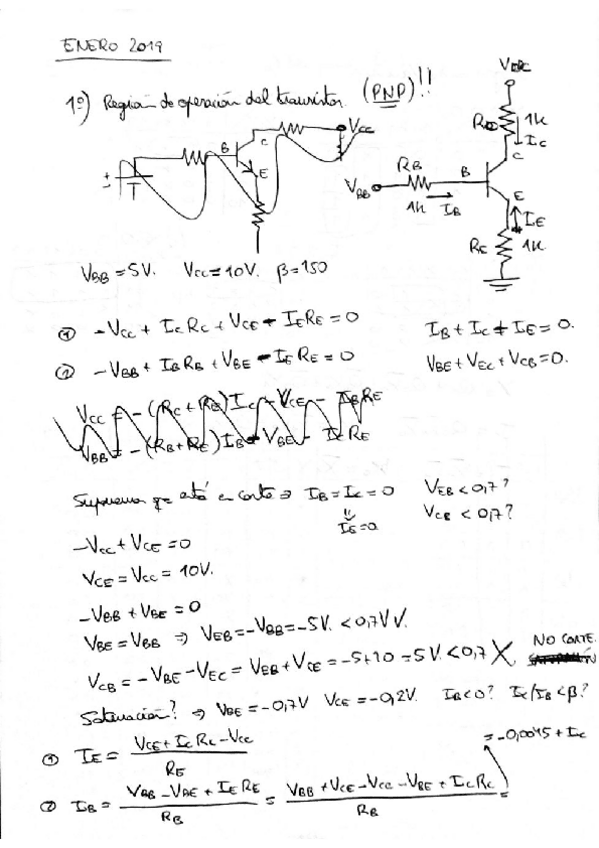 ENERO 2019
1º) Región de operación del transistor. (PNP)!!
VCC
RC 1k
IC
B C VCC
E
C
RB
VBB B
1k IB
E
IE
RE 1k
VBB = 5V. VCC = 10V. β = 150
① -VCC + IC RC + VCE - IE RE = 0 IB + IC + IE = 0.
② -VBB + IB RB + VBE - IE RE = 0 VBE + VEC + VCB = 0.
VCC = -(RC + RE) IC + VCE - IB RE
VBB = -(RB + RE) IB + VBE - IC RE
Supongamos que está en corte ⇒ IB = IC = 0 VEB < 0,7?
⇓ VCB < 0,7?
IE = 0
-VCC + VCE = 0
VCE = VCC = 10V.
-VBB + VBE = 0
VBE = VBB ⇒ VEB = -VBB = -5V. < 0,7V V.
VCB = -VBE - VEC = VEB + VCE = -5 + 10 = 5V. < 0,7 X NO CORTE.
Saturación? ⇒ VBE = -0,7V VCE = -0,2V. IB < 0? IC/IB < β?
① IE = (VCE + IC RC - VCC) / RE
= -0,0095 + IC
② IB = (VBB - VBE + IE RE) / RB = (VBB + VCE - VCC - VBE + IC RC) / RB =